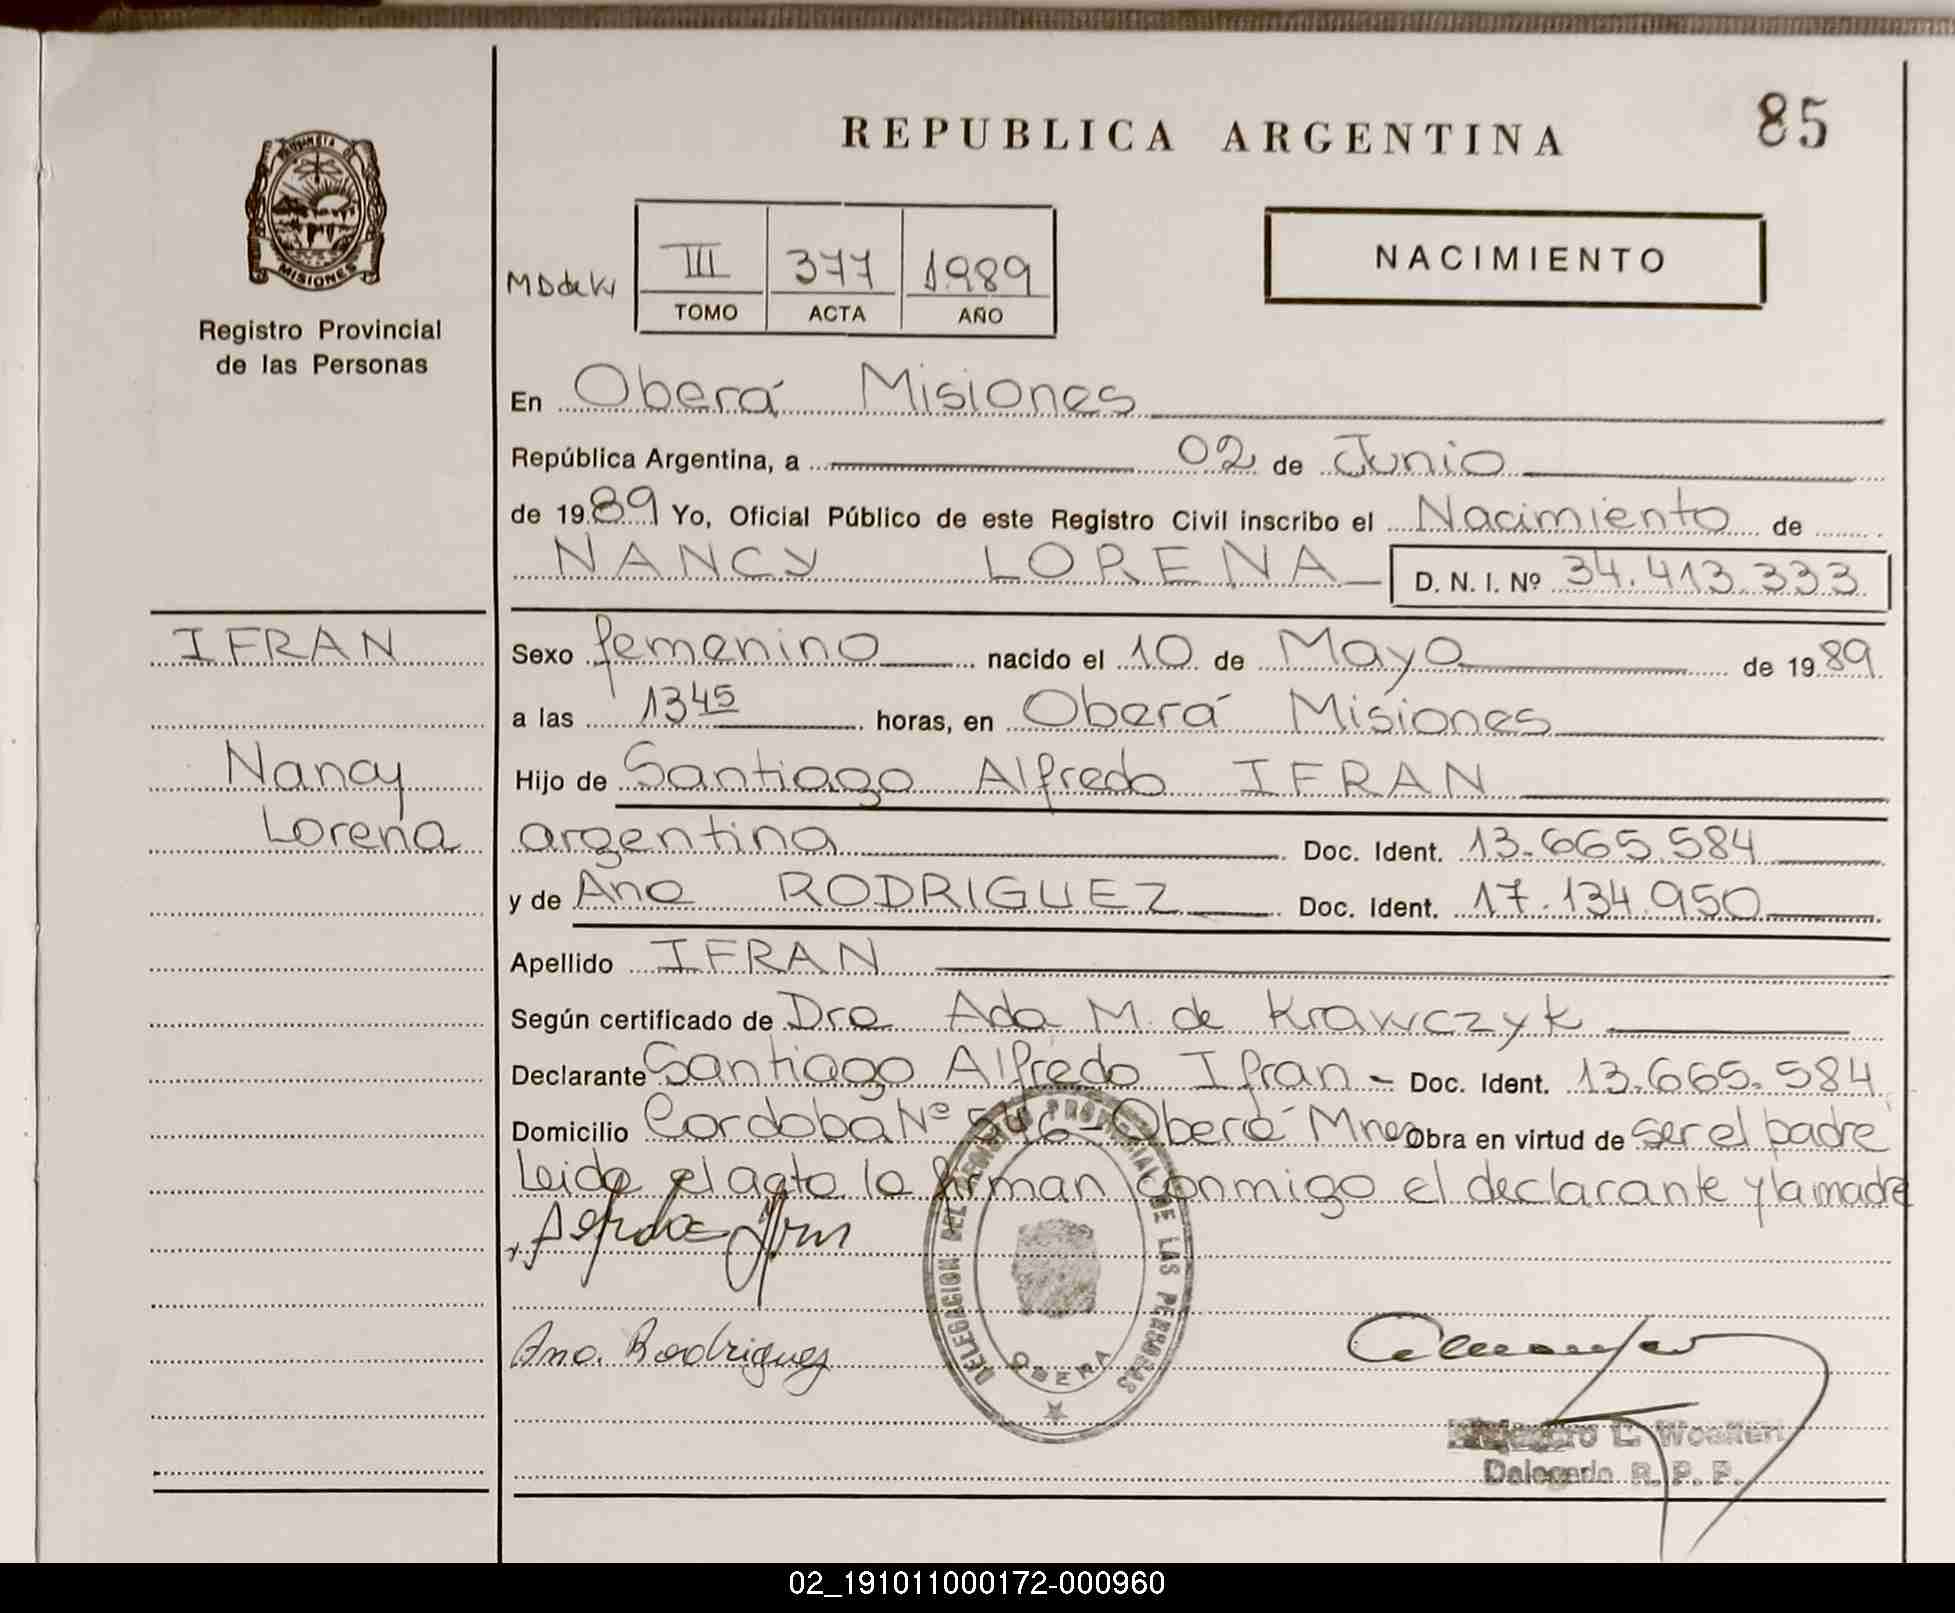 REPUBLICA ARGENTINA
85
PROVINCIA DE
MISIONES
Registro Provincial
de las Personas
III 377 1989
TOMO ACTA AÑO
NACIMIENTO
En Oberá Misiones
República Argentina, a 02 de Junio
de 1989 Yo, Oficial Público de este Registro Civil inscribo el Nacimiento de
NANCY LORENA D. N. I. Nº 34.413.333
IFRAN
Nancy
Lorena
Sexo femenino nacido el 10 de Mayo de 1989
a las 13 45 horas, en Oberá Misiones
Hijo de Santiago Alfredo IFRAN
argentina Doc. Ident. 13.665.584
y de Ana RODRIGUEZ Doc. Ident. 17.134.950
Apellido IFRAN
Según certificado de Dra Ada M. de Krawczyk
Declarante Santiago Alfredo Ifran - Doc. Ident. 13.665.584
Domicilio Cordoba Nº 546 - Oberá Mnes Obra en virtud de ser el padre
Leida el acta la firman conmigo el declarante y la madre
Ana Rodriguez
DELEGACION DEL REGISTRO PROVINCIAL DE LAS PERSONAS
OBERA
Delegado R. P. P.
02_191011000172-000960